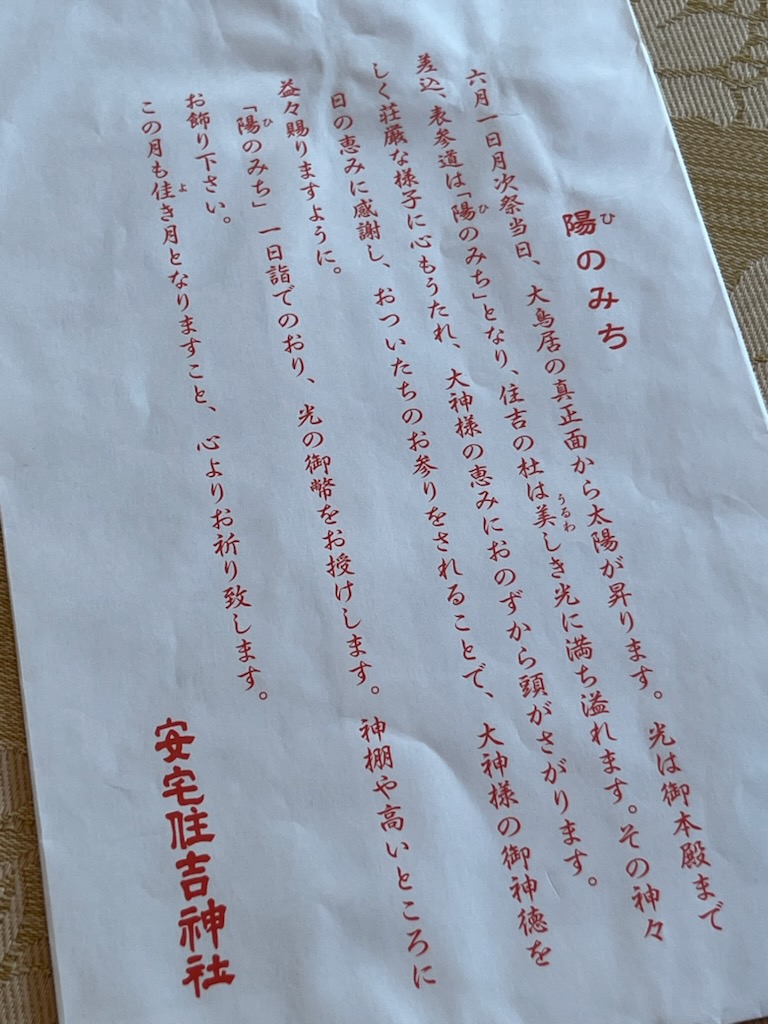 陽のみち
六月一日月次祭当日、大鳥居の真正面から太陽が昇ります。光は御本殿まで
差込、表参道は「陽のみち」となり、住吉の杜は美しき光に満ち溢れます。その神々
しく荘厳な様子に心もうたれ、大神様の恵みにおのずから頭がさがります。
日の恵みに感謝し、おついたちのお参りをされることで、大神様の御神徳を
益々賜りますように。
「陽のみち」一日詣でのおり、光の御幣をお授けします。神棚や高いところに
お飾り下さい。
この月も佳き月となりますこと、心よりお祈り致します。
安宅住吉神社